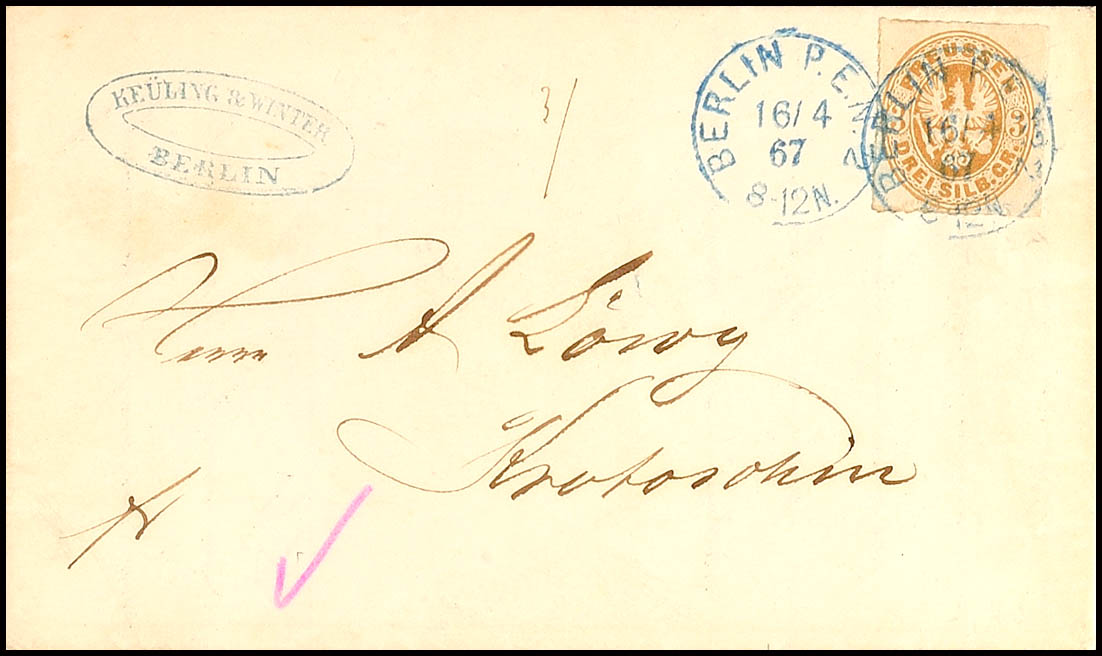 KEÜLING & WINTER
BERLIN
BERLIN P.E. N 2
16/4
67
8-12N.
PREUSSEN
3
DREI SILB. GR.
BERLIN P.
16/4
67
8-12N.
Herrn A Löwy
Krotoschin
fr